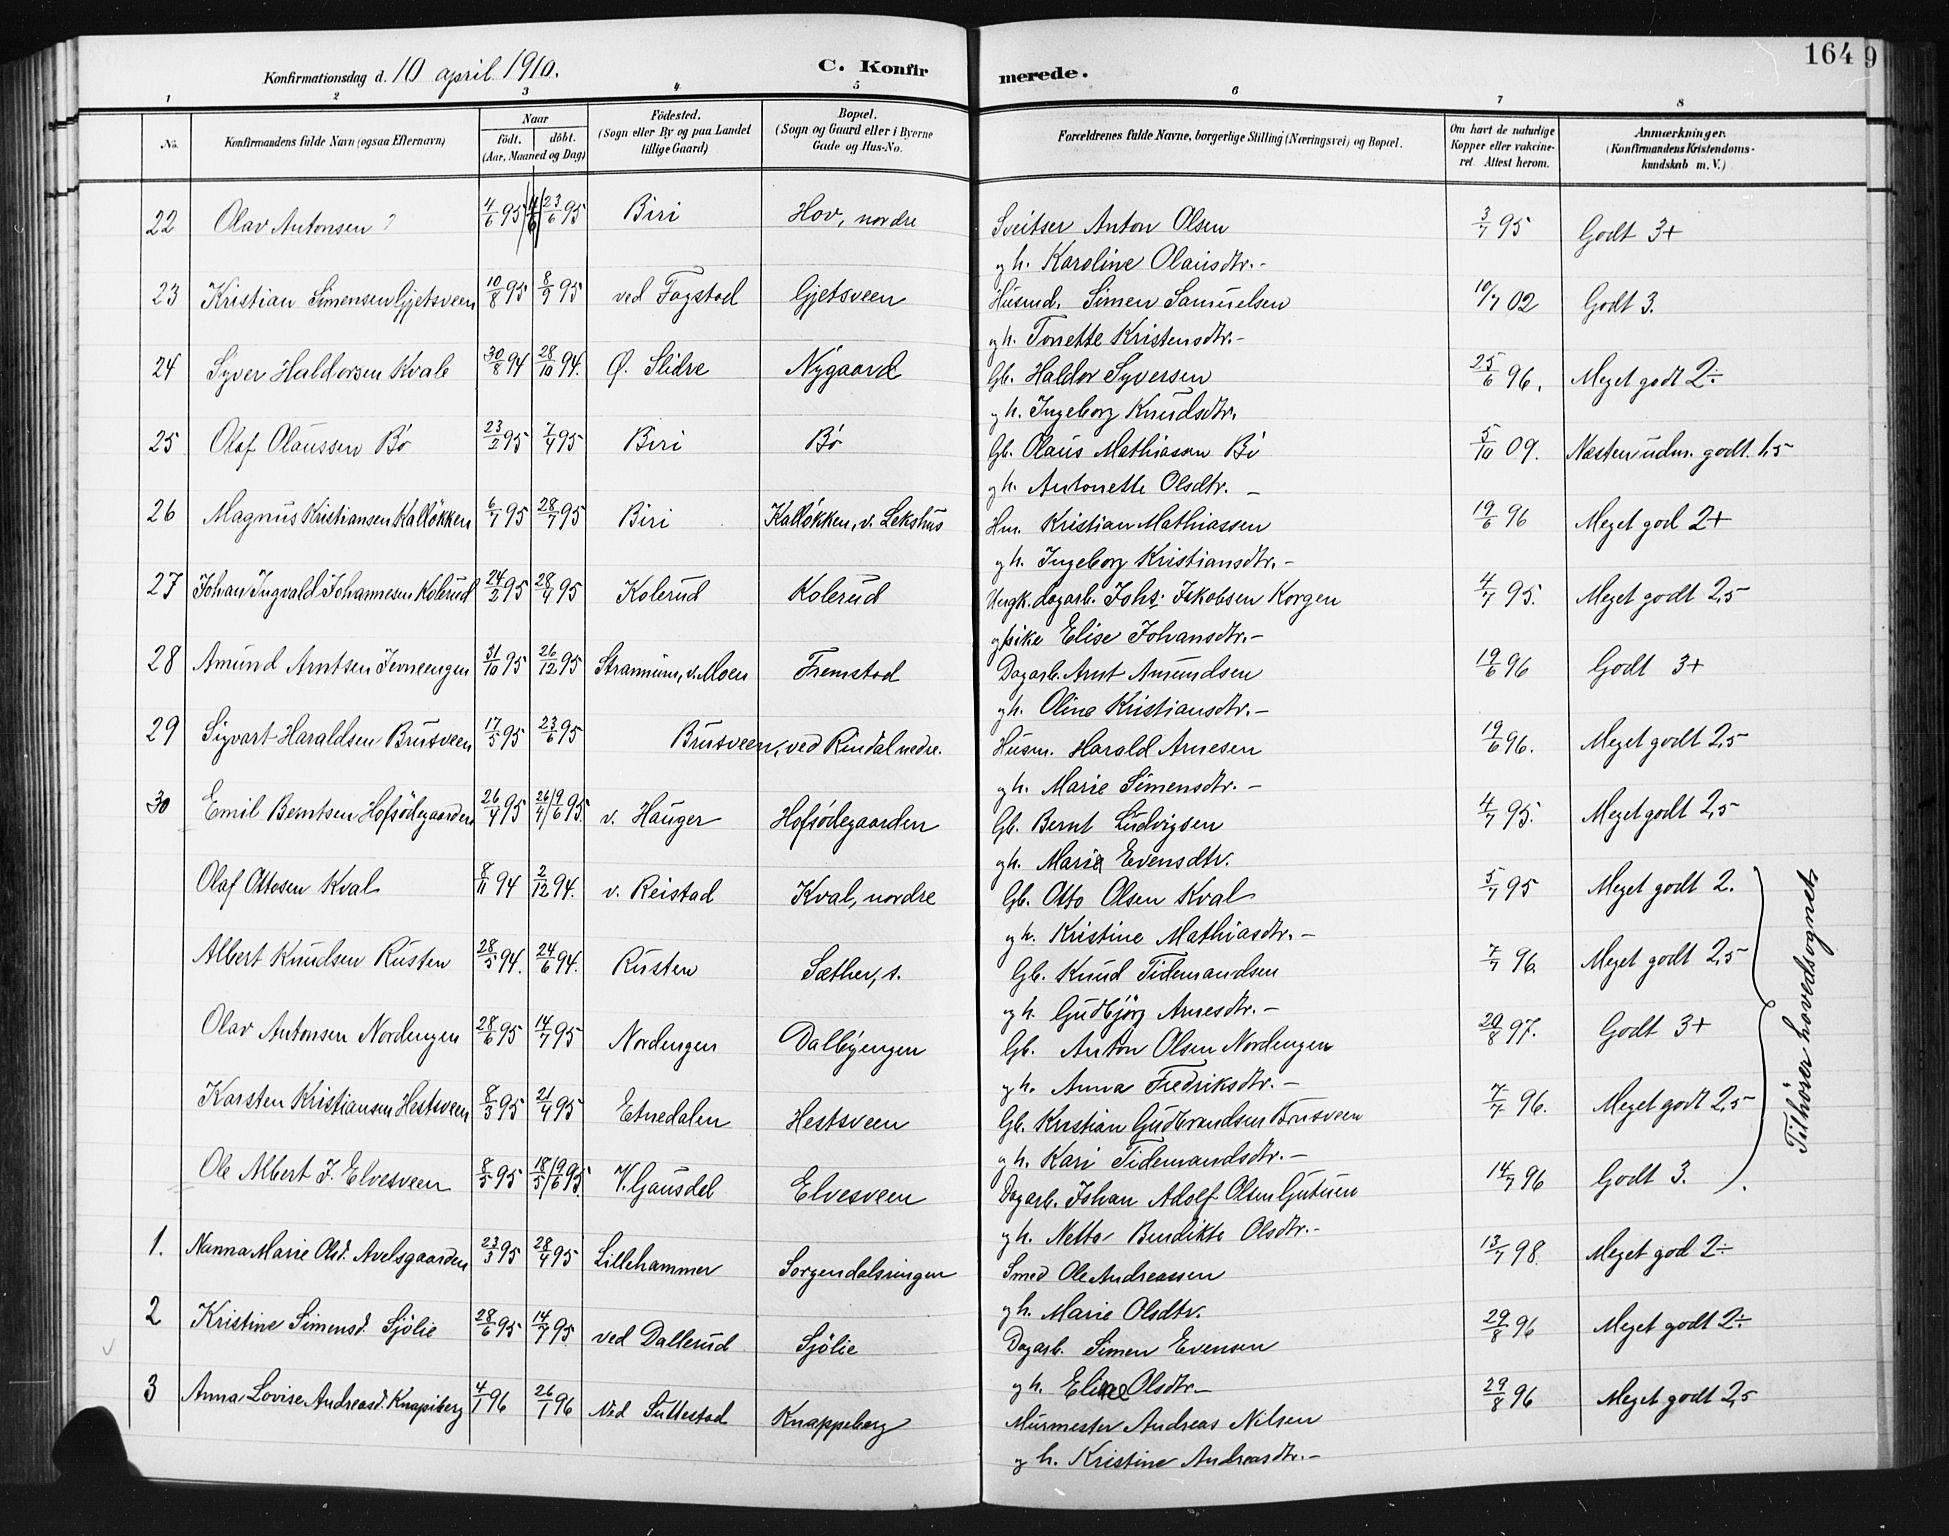 Konfirmationsdag d. 10 april 1910.
C. Konfirmerede.
164 9
1 2 3 4 5 6 7 8
No.
Konfirmandens fulde Navn (ogsaa Efternavn)
Naar
födt. döbt.
(Aar, Maaned og Dag)
Födested.
(Sogn eller By og paa Landet tillige Gaard)
Bopæl.
(Sogn og Gaard eller i Byerne Gade og Hus-No.
Forældrenes fulde Navne, borgerlige Stilling (Næringsvei) og Bopæl.
Om havt de naturlige Kopper eller vakcineret. Attest herom.
Anmærkninger.
(Konfirmandens Kristendomskundskab m. V.)
22 Olav Antonsen 4/6 95 23/6 95 Biri Hov, nordre Sveitser Anton Olsen 3/7 95 Godt 3+
og h. Karoline Olausdtr.-
23 Kristian Simensen Gjetsveen 10/8 95 8/9 95 ved Fagstad Gjetsveen Husmd. Simen Samuelsen 10/7 02 Godt 3.
og h. Tonette Kristensdtr.-
24 Syver Haldorsen Kvale 30/8 94 28/10 94. Ø. Slidre Nygaard Gb. Haldor Syversen 25/6 96. Meget godt 2÷
og h. Ingeborg Knudsdtr.
25 Olaf Olaussen Bö 23/2 95 7/4 95 Biri Bö Gb. Olaus Mathiasen Bö 5/10 09. Næsten udm. godt. 1,5
og h. Antonette Olsdtr. -
26 Magnus Kristiansen Kallökken 6/7 95 28/7 95 Biri Kallökken, v. Lekshus Hm. Kristian Mathiassen 19/6 96 Meget god 2+
og h. Ingeborg Kristiansdtr.-
27 Johan Ingvald Johannesen Kolerud 24/2 95 28/4 95 Kolerud Kolerud Ungk. dagarb. Johs. Jakobsen Korgen 4/7 95. Meget godt 2,5
og pike Elise Johansdtr.-
28 Amund Arntsen Jevneengen 31/10 95 26/12 95 Strammun, v. Moen Fremstad Dagarb. Arnt Amundsen 19/6 96 Godt 3+
og h. Oline Kristiansdtr.-
29 Sigvart Haraldsen Brusveen 17/5 95 23/6 95 Brusveen, ved Rindal nedre. Husm. Harald Arnesen 19/6 96. Meget godt 2,5
og h. Marie Simensdtr. -
30 Emil Berntsen Hofsödegaarden 26/4 95 26/4/9/6 95. v. Hauger Hofsödegaarden Gb. Bernt Ludvigsen 4/7 95. Meget godt 2,5
og h. Marie Evensdtr.
Olaf Ottosen Kval 8/11 94 2/12 94. v. Reistad Kval, nordre Gb. Otto Olsen Kval 5/7 95 Meget godt 2.
og h. Kristine Mathiasdtr.-
Albert Knudsen Rusten 28/5 94. 24/6 94. Rusten Sæther, s. Gb. Knud Tidemandsen 7/7 96. Meget godt 2,5
og h. Gudbjörg Arnesdtr.-
Olav Antonsen Nordengen 28/6 95 14/7 95 Nordengen Dalbyengen Gb. Anton Olsen Nordengen 20/8 97. Godt 3+
og h. Anna Fredriksdtr.-
Karsten Kristiansen Hestsveen 8/3 95 21/4 95 Etnedalen Hestsveen Gb. Kristian Gudbrandsen Brusveen 7/7 96. Meget godt 2,5
og h. Kari Tidemandsdtr.-
Ole Albert J. Elvesveen 8/5 95 18/5/9/6 95. V. Gausdal Elvesveen Dagarb. Johan Adolf Olsen Gutuen 14/7 96 Godt 3.
og h. Netta Bendikte Olsdtr.-
Tilhører hovedsognet
1. Nanna Marie Olsd. Avelsgaarden 23/3 95 28/4 95 Lillehammer Sorgendalsringen Smed Ole Andreassen 13/7 98. Meget god 2÷
og h. Marie Olsdtr.
2 Kristine Simensd. Sjölie 28/6 95 14/7 95. ved Dallerud Sjölie Dagarb. Simen Evensen 29/8 96 Meget godt 2÷
og h. Eline Olsdtr.-
3 Anna Lovise Andreasd. Knapiberg 4/1 96 26/1 96 Ved Suttestad Knappeberg Murmester Andreas Nilsen 29/8 96 Meget godt 2,5
og h. Kristine Andreasdtr.-